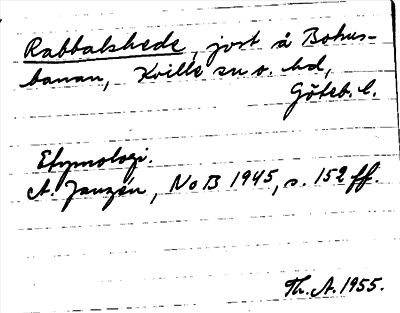 Rabbalshede, jvst å Bohus-
banan, Kville sn o. hd,
Göteb. l.
Etymologi.
A. Janzén, NoB 1945, s. 152 ff.
Th. A. 1955.